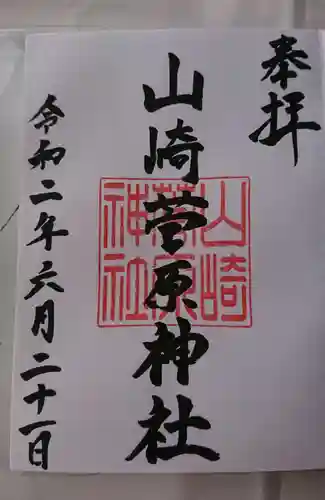 奉拝
山崎菅原神社
山崎菅原神社
令和二年六月二十一日